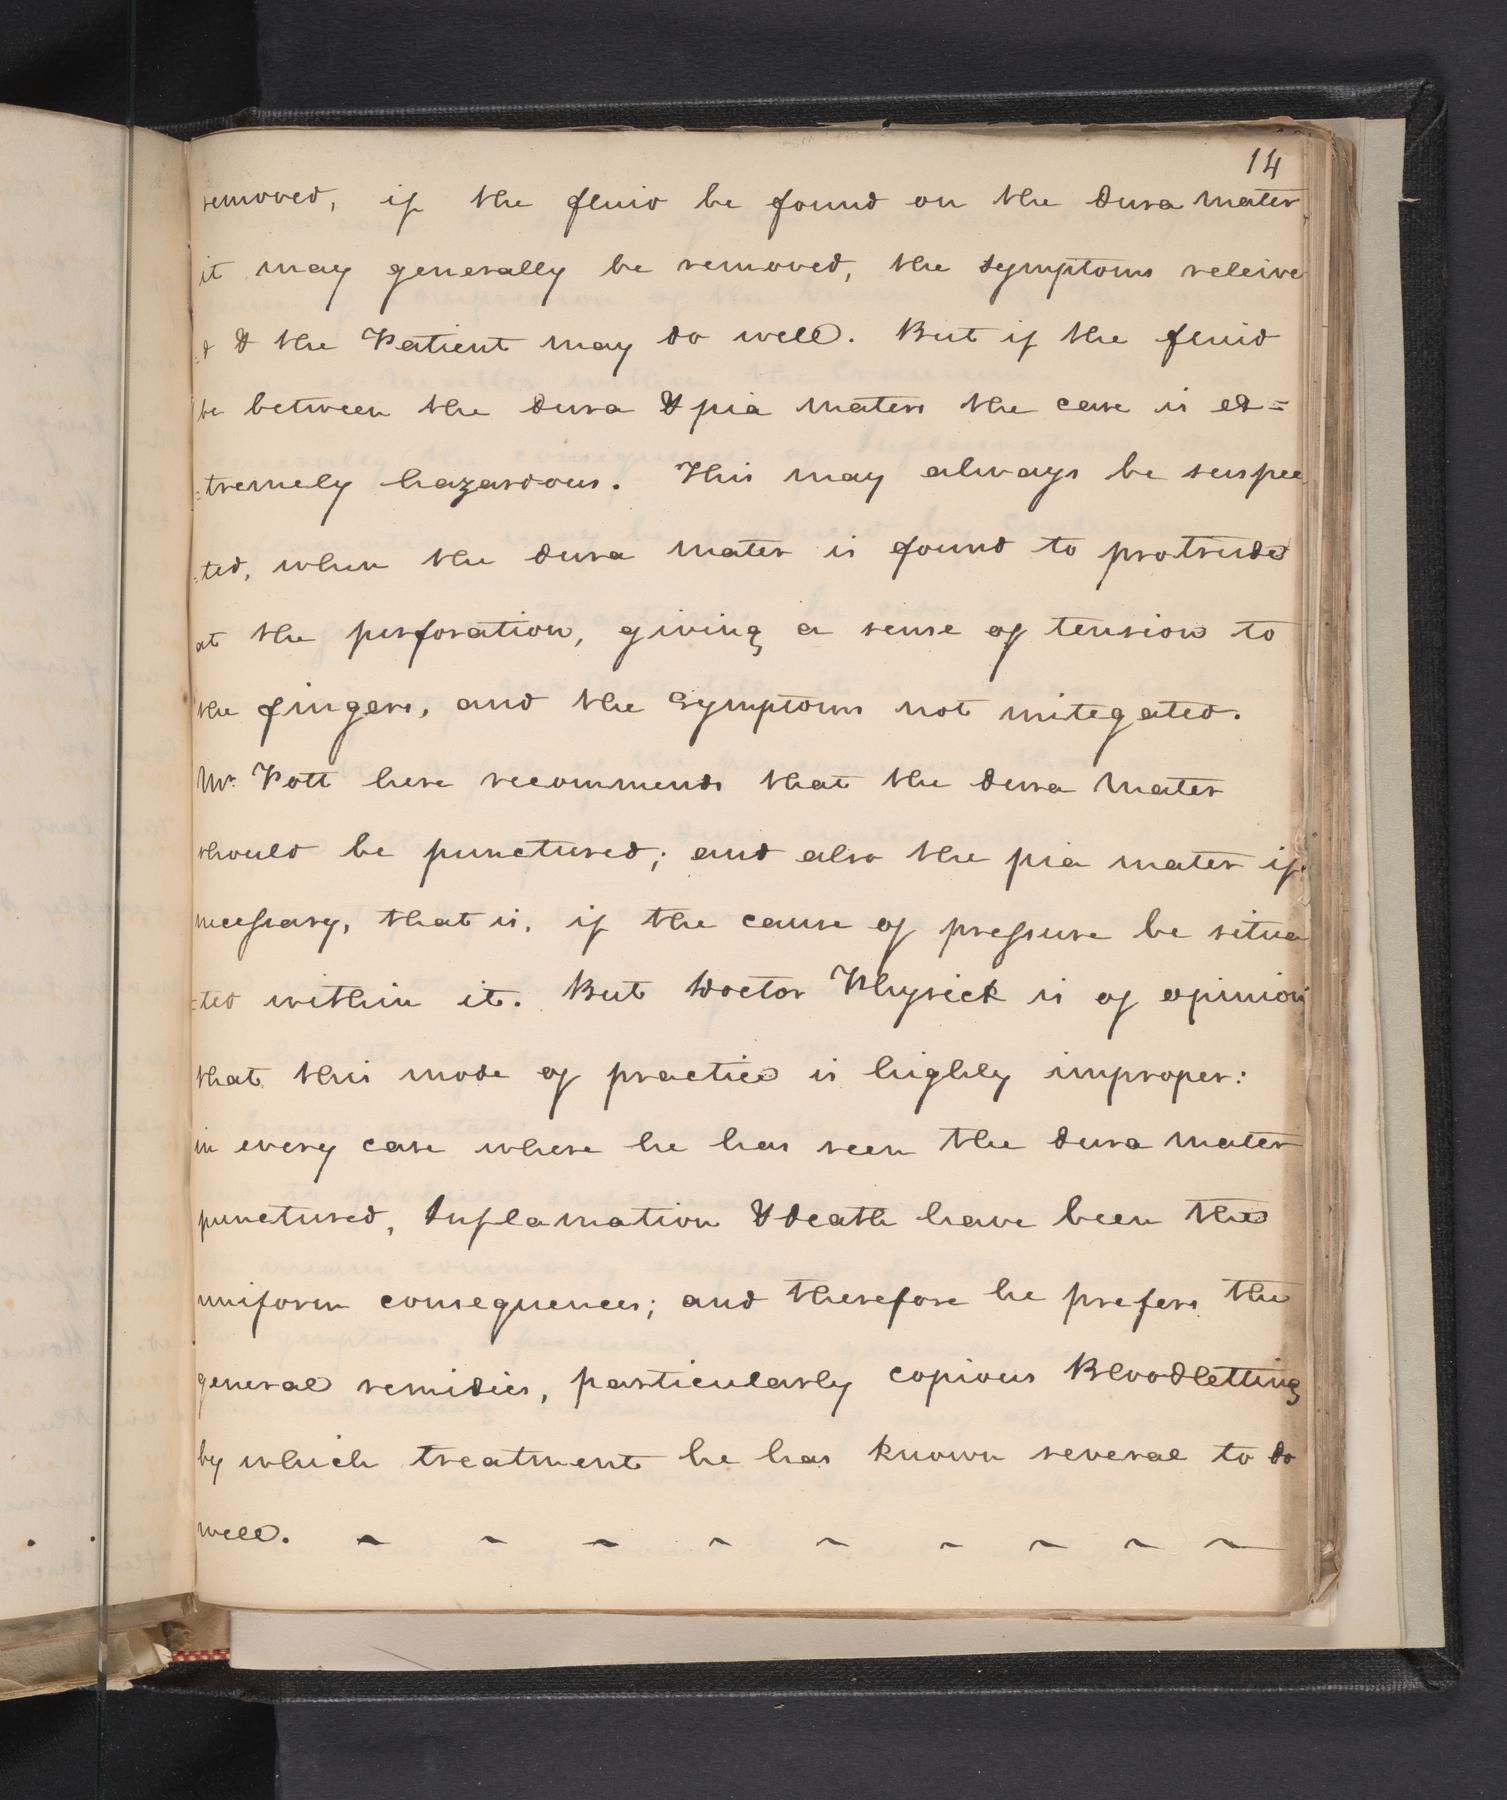 14
removed, if the fluid be found on the dura mater
it may generally be removed, the symptoms releive
:d & the Patient may do well. But if the fluid
be between the dura & pia maters the case is ex=
:tremely hazardous. This may always be suspec
:ted, when the dura mater is found to protrude
at the perforation, giving a sense of tension to
the fingers, and the Symptoms not mitegated.
Mr. Pott here recommends that the dura mater
should be punctured; and also the pia mater if
necessary, that is, if the cause of pressure be situa
:ted within it. But Doctor Physick is of opinion
that this mode of practice is highly improper:
in every case where he has seen the dura mater
punctured, Inflamation & death have been the
uniform consequences; and therefore he prefers the
general remidies, particularly copious Bloodletting
by which treatment he has known several to do
well. ~ ~ ~ ~ ~ ~ ~ ~ ~